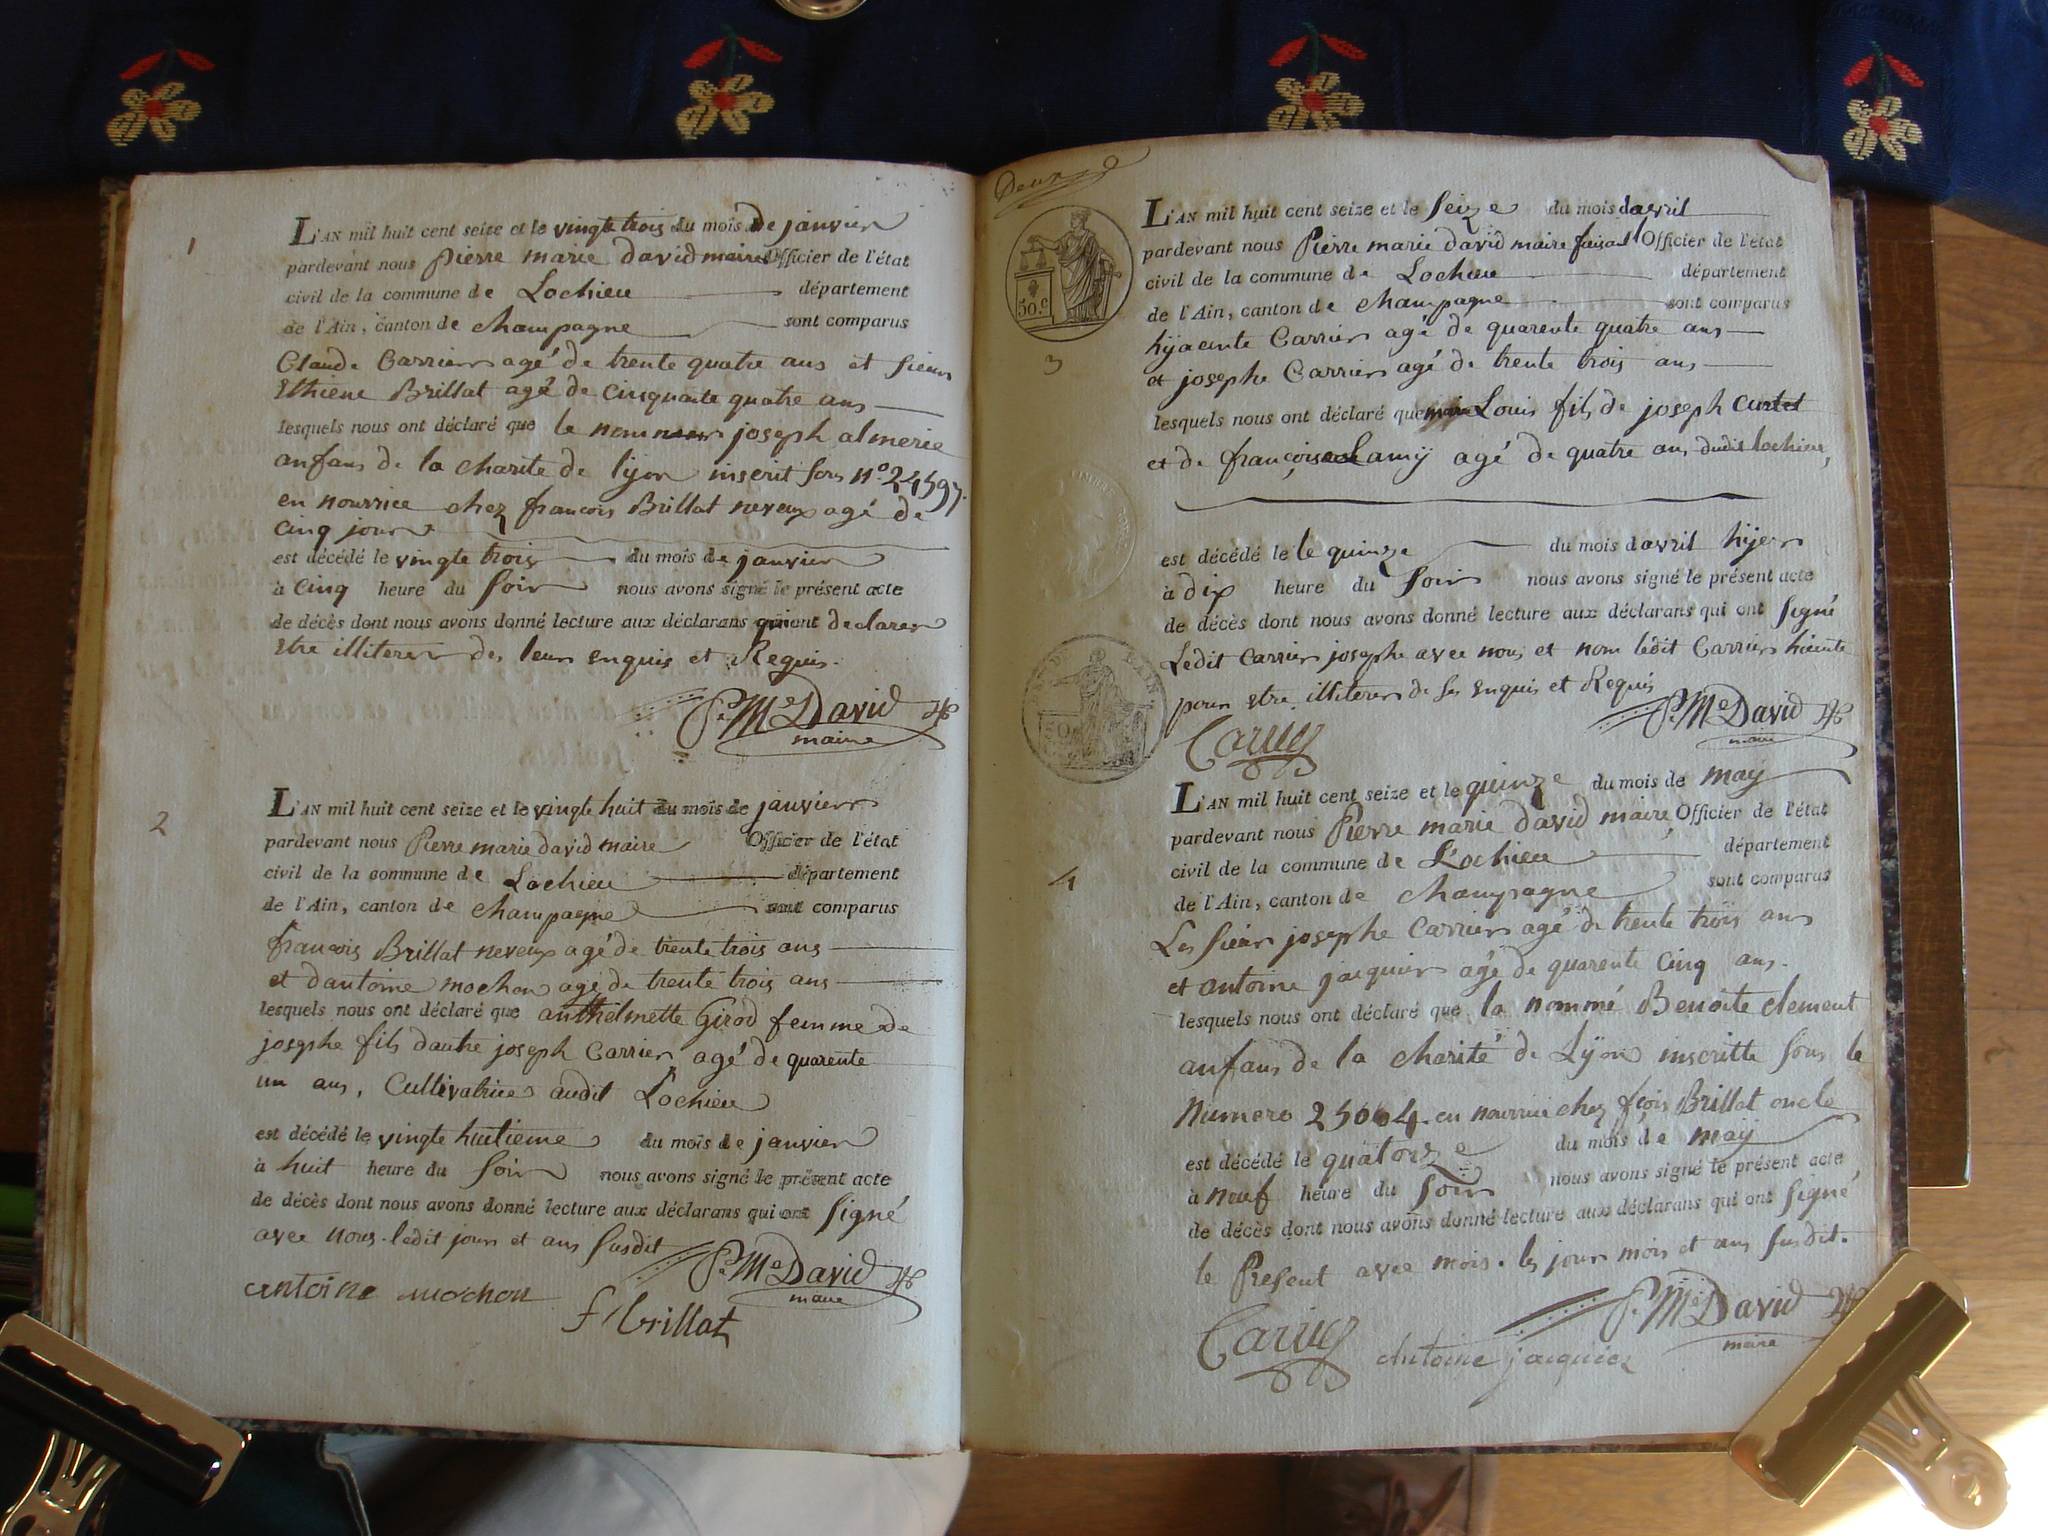 1
L'AN mil huit cent seize et le vingte trois du mois de janvier
pardevant nous Pierre marie david maire Officier de l'état
civil de la commune de Lochieu département
de l'Ain, canton de champagne sont comparus
Claude Carrier agé de trente quatre ans et sieur
Ethiene Brillat agé de Cinquante quatre ans
lesquels nous ont déclaré que le nom joseph almerie
anfans de la charite de lyon inscrit sous n.o 24597.
en nourrice chez francois Brillat neveux agé de
cinq jours
est décédé le vingte trois du mois de janvier
à Cinq heure du soir nous avons signé le présent acte
de décès dont nous avons donné lecture aux déclarans qui ont declarer
Etre illiterer de leur enquis et Requis.
P. Me David
maire
2
L'AN mil huit cent seize et le vingte huit du mois de janvier
pardevant nous Pierre marie david maire Officier de l'état
civil de la commune de Lochieu département
de l'Ain, canton de champagne sont comparus
francois Brillat neveux agé de trente trois ans
et dantoine mochon agé de trente trois ans
lesquels nous ont déclaré que anthelmette Girod femme de
josephe fils dautre joseph Carrier agé de quarente
un ans, Cultivatrice audit Lochieu
est décédé le vingte huitieme du mois de janvier
à huit heure du soir nous avons signé le présent acte
de décès dont nous avons donné lecture aux déclarans qui ont signé
avec nous ledit jour et ans susdit
P. Me David
maire
antoine mochon
f brillat
Deux
50.c
3
L'AN mil huit cent seize et le seize du mois davril
pardevant nous Pierre marie david maire faisant Officier de l'état
civil de la commune de Lochieu département
de l'Ain, canton de champagne sont comparus
hyacinte Carrier agé de quarente quatre ans
et josephe Carrier agé de trente trois ans
lesquels nous ont déclaré que Louis fils de joseph Curtet
et de françoise Lamy agé de quatre ans dudit lochieu,
est décédé le le quinze du mois davril hyer
à dix heure du soir nous avons signé le présent acte
de décès dont nous avons donné lecture aux déclarans qui ont signé
Ledit Carrier josephe avec nous et nom ledit Carrier hiacinte
pour etre illiterer de ses enquis et Requis
P. Me David
maire
4
L'AN mil huit cent seize et le quinze du mois de may
pardevant nous Pierre marie david maire Officier de l'état
civil de la commune de Lochieu département
de l'Ain, canton de champagne sont comparus
Les sieur josephe Carrier agé de trente trois ans
et antoine jacquier agé de quarente Cinq ans.
lesquels nous ont déclaré que la nommé Benoite clement
anfans de la charité de Lyon inscritte sous le
Numero 25004 en nourrice chez fçois Brillat oncle
est décédé le quatorze du mois de may
à neuf heure du soir nous avons signé le présent acte
de décès dont nous avons donné lecture aux déclarans qui ont signé
le Present avec mois. les jour mois et ans susdit.
P. Me David
maire
antoine jacquier